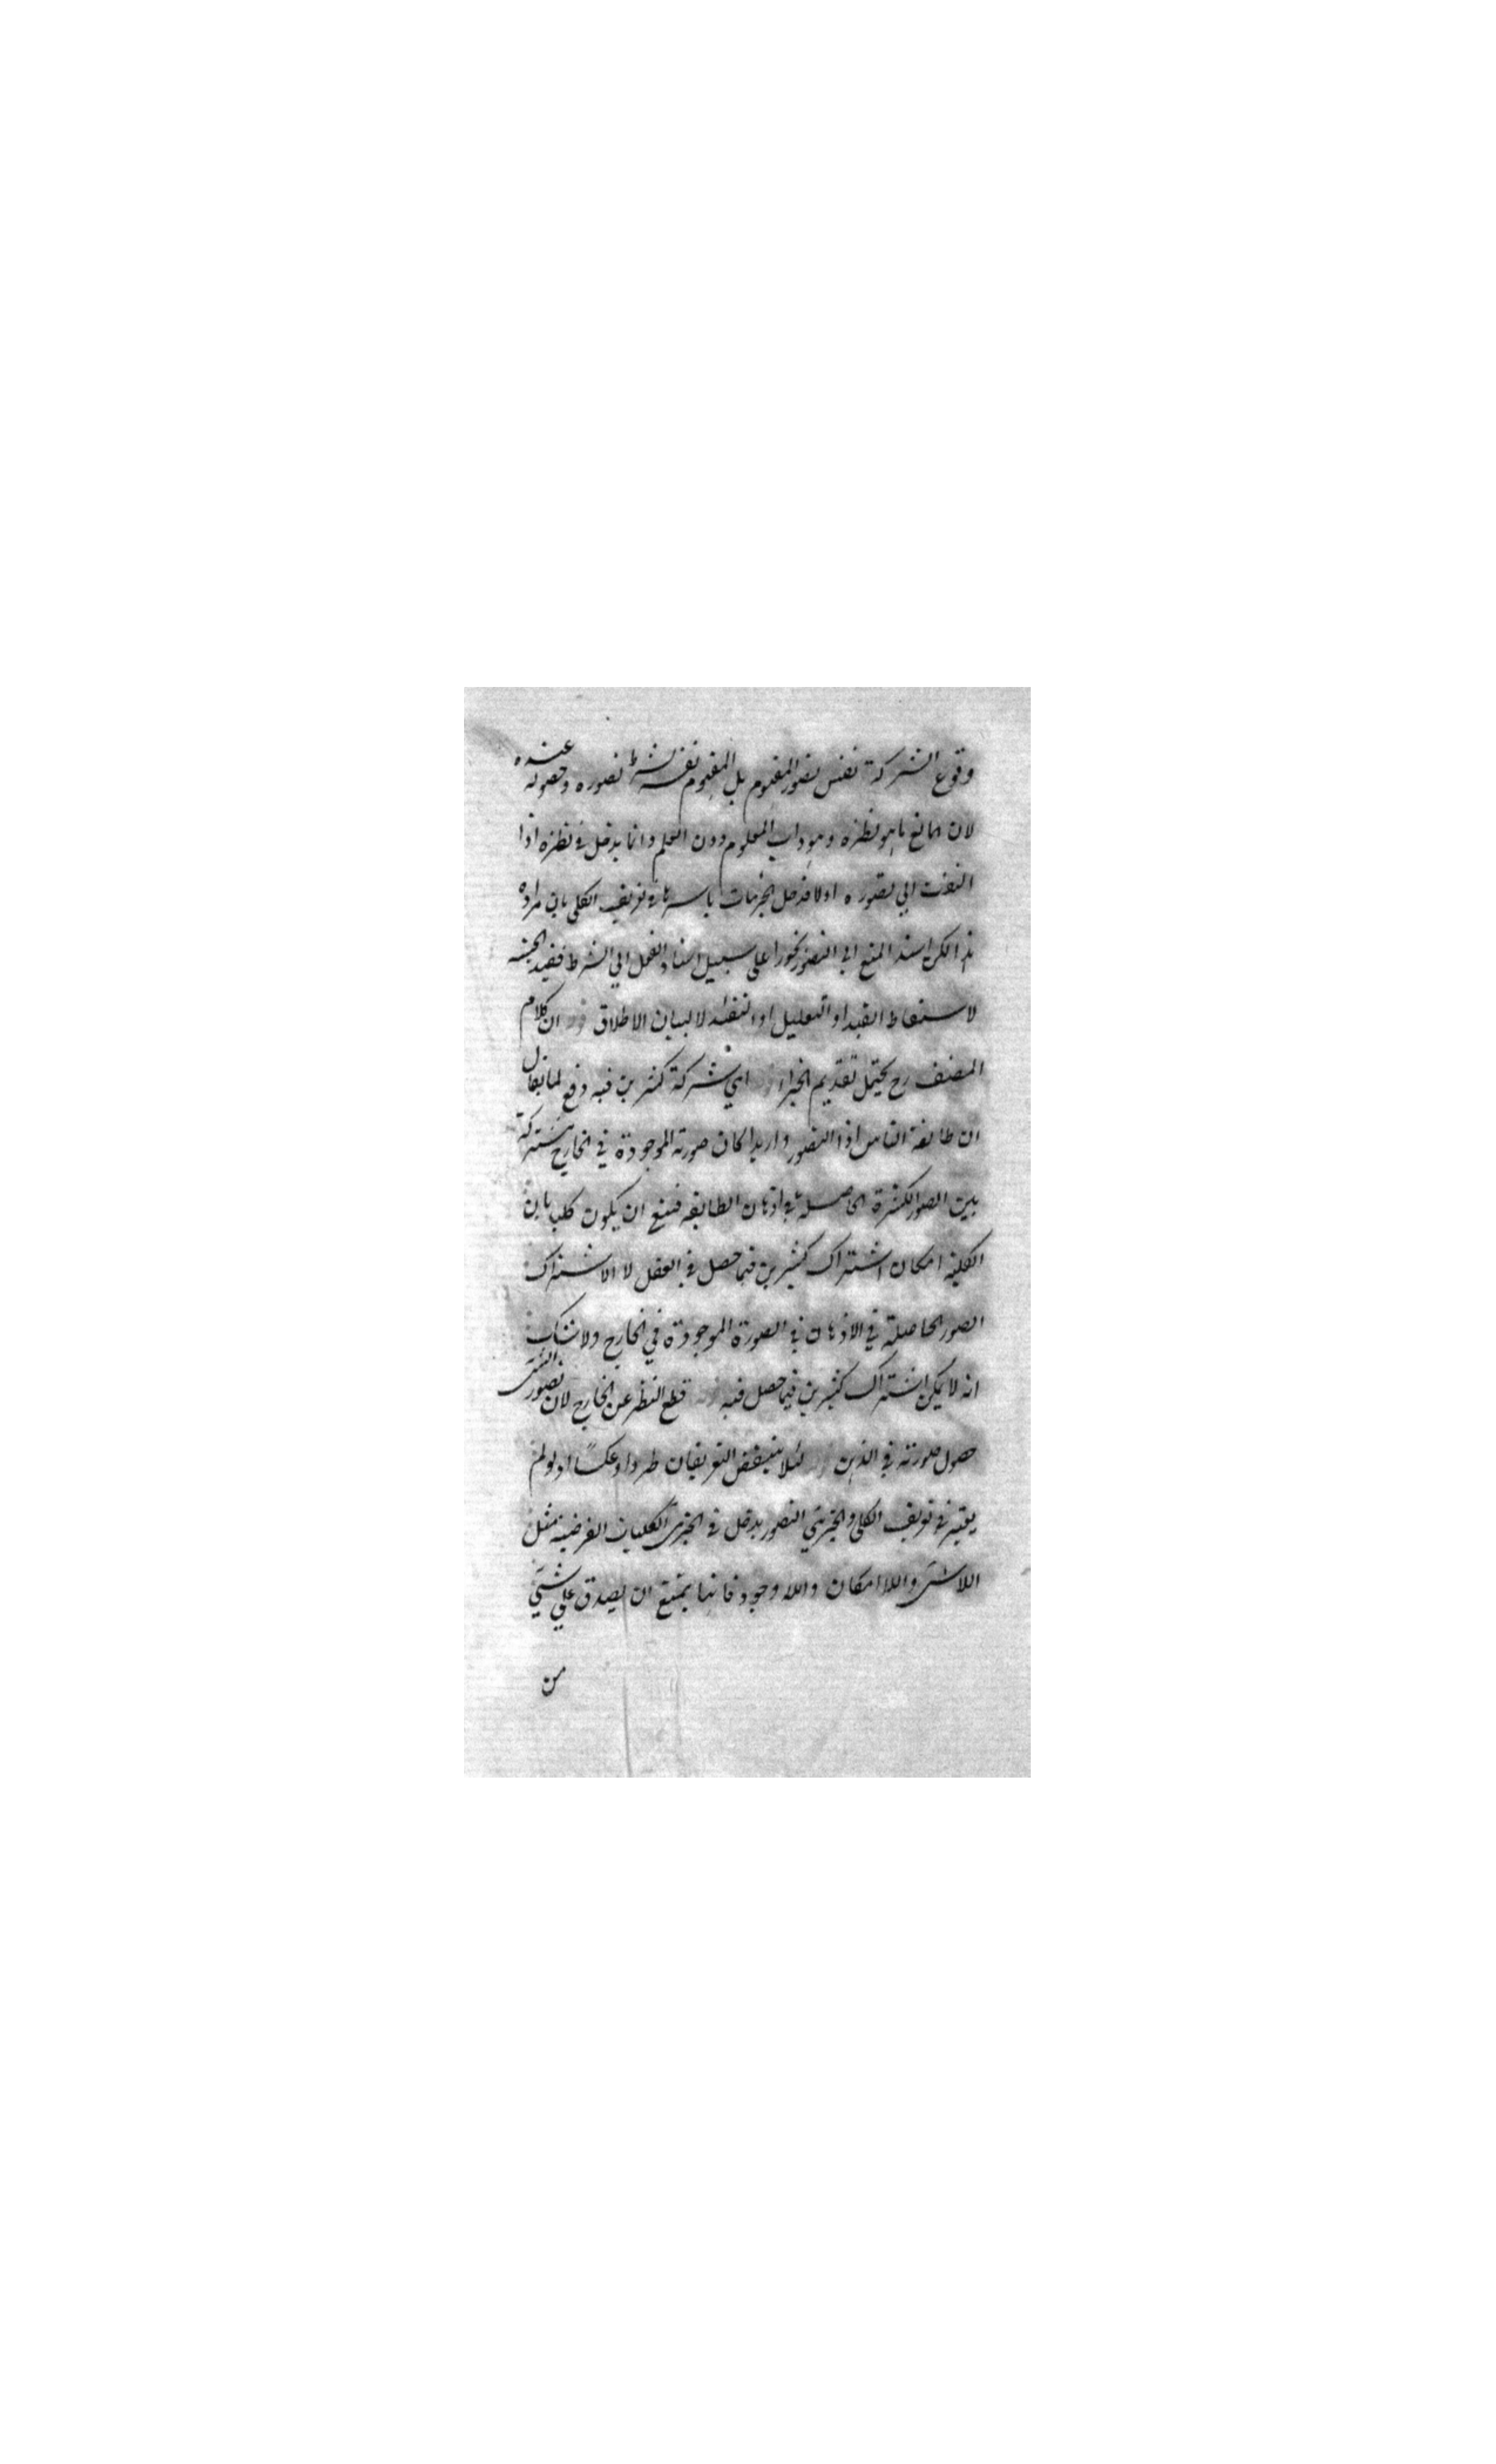 وقوع الشركة نفس تصور المفهوم بل المفهوم نفسه بشرط تصوره وحصوله عنده
لان مانع ما هو نظره وهو ذات المعلوم دون العلم وانما يدخل في نظره اذا
التفت الي تصوره اولا فدخل الجزئيات باسرها في تعريف الكلي بان مراده
هذا لكن اسند المنع الي التصور تجوزا على سبيل اسناد الفعل الي الشرط فقيد
لاسقاط القيد او التعليل او التقليد لا لبيان الاطلاق قوله ان كلام
المصنف رح يحتمل تقديم الجزاء قوله اي شركة كثيرين فيه دفع لما يقال
ان طائفة الناس اذا تصوروا زيدا كان صورته الموجودة في الخارج مشتركة
بين الصور الكثيرة الحاصلة في اذهان الطائفة فمنع ان يكون كليا بان
الكلية امكان اشتراك كثيرين فيما حصل في العقل لا الاشتراك
الصور الحاصلة في الاذهان في الصورة الموجودة في الخارج ولا شك
انه لا يمكن اشتراك كثيرين فيما حصل فيه قوله قطع النظر عن الخارج لان تصور الشئ
حصول صورته في الذهن قوله لئلا ينتقض التعريفان طردا وعكسًا اذ لو لم
يعتبر في تعريف الكلي والجزئي التصور يدخل في الجزئي الكليات الفرضية مثل
اللاشئ واللاامكان واللاوجود فانها يمتنع ان يصدق علي شئ
من